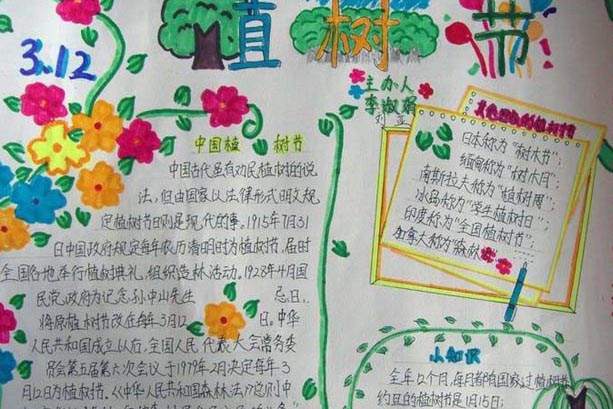 3.12
植树节
主办人
李淑娟
中国植树节
中国古代虽有劝民植树的说
法,但由国家以法律形式明文规
定植树节日则是现代的事。1915年7月31
日中国政府规定每年农历清明时为植树节,届时
全国各地举行植树典礼,组织造林活动。1928年4月国
民党政府为记念孙中山先生 忌日,
将原植树节改在每年3月12 日。中华
人民共和国成立以后,全国人民代表大会常务委
员会第五届第六次会议于1979年2月决定每年3
月12日为植树节。《中华人民共和国森林法》总则中
的植树节
日本称为“树木节”;
缅甸称为“树木月”;
南斯拉夫称为“植树周”;
冰岛称为“学生植树日”;
印度称为“全国植树节”;
加拿大称为“森林
小知识
全年12个月,每月都有国家过植树节
约旦的植树节是1月15日;